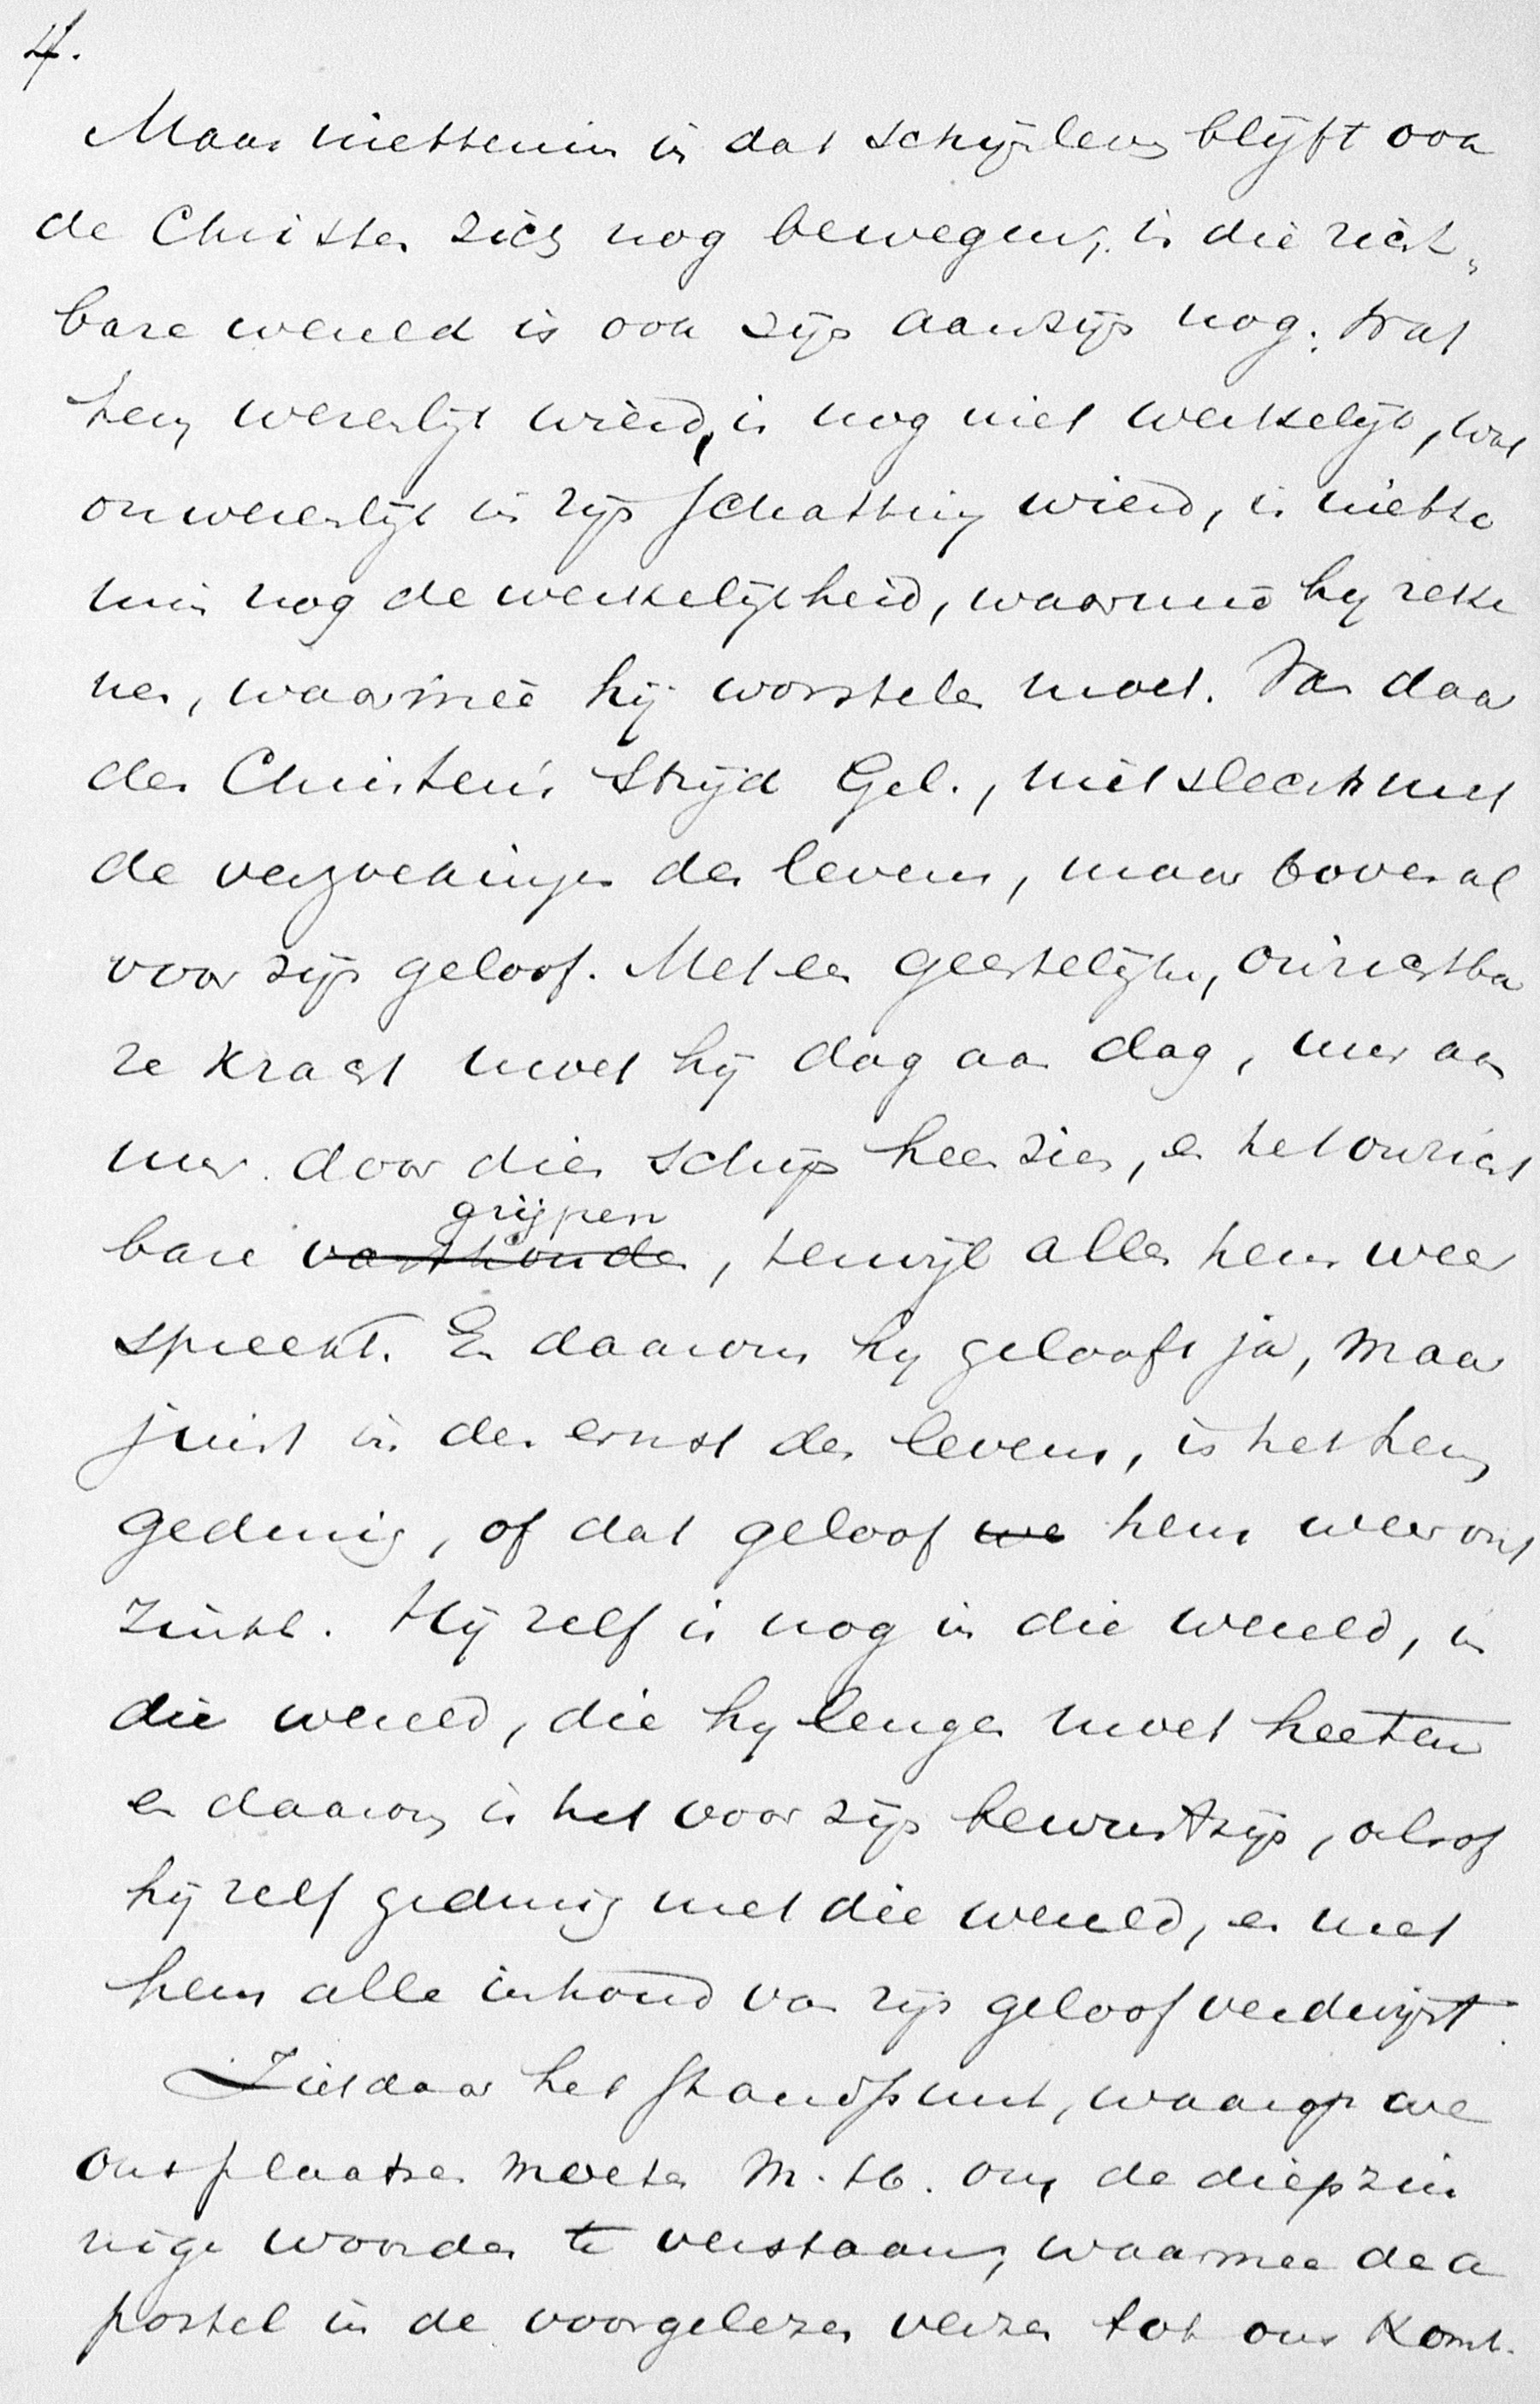 4.
Maar niettemin in dat schijnleven blijft ook
de Christen zich nog bewegen, in die zicht-
bare wereld is ook zijn aanzijn nog. Wat
hem wezenlijk wierd, is nog niet werkelijk, wat
onwezenlijk in zijn schatting wierd, is niette
min nog de werkelijkheid, waarmeê hij reke
nen, waarmeê hij worstelen moet. Van daar
des Christens strijd Gel., niet slechts met
de verzoekingen des levens, maar bovenal
voor zijn geloof. Met een geestelijke, onzichtba
re kracht moet hij dag aan dag, uur aan
uur door dien schijn heen zien, en het onzicht
bare ~~vasthouden~~ grijpen, terwijl alles hem weer
spreekt. En daarom hij gelooft ja, maar
juist in den ernst des levens, is het hem
gedurig, of dat geloof ~~we~~ hem weer ont
zinkt. Hij zelf is nog in die wereld, in
die wereld, die hij leugen moet heeten
en daarom is het voor zijn bewustzijn, alsof
hij zelf gedurig met die wereld, en met
hem alle inhoud van zijn geloof verdwijnt.
Ziet daar het standpunt, waarop we
ons plaatsen moeten M. H. om de diepzin
nige woorden te verstaan, waarmee de a
postel in de voorgelezen verzen tot ons komt.